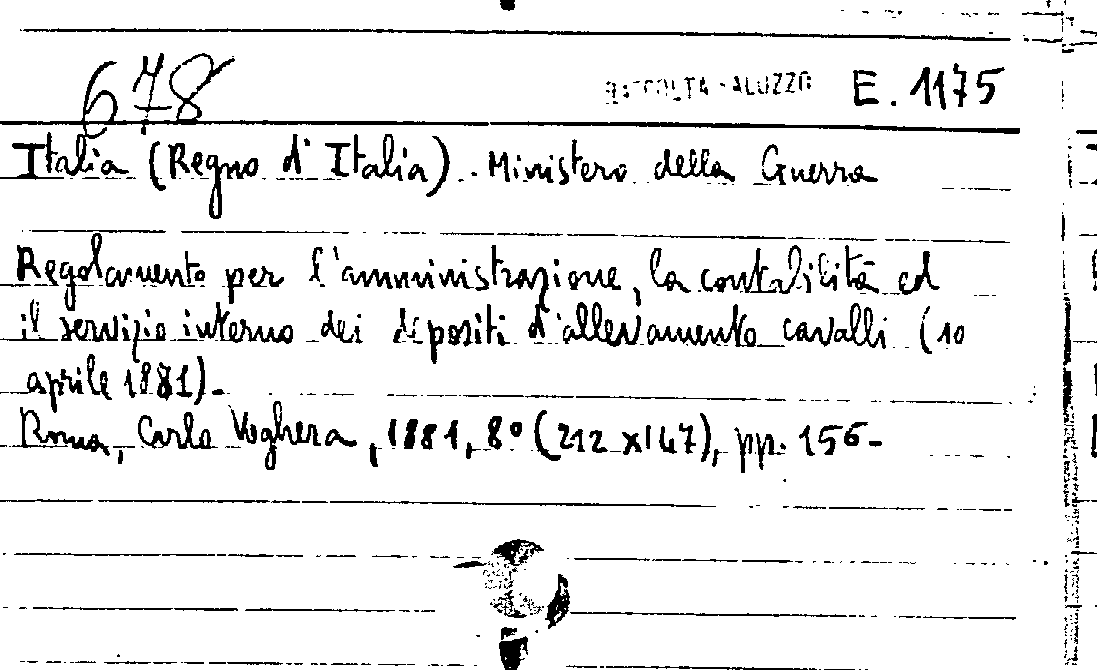 678 RACCOLTA SALUZZO E. 1175
Italia (Regno d'Italia). Ministero della Guerra
Regolamento per l'amministrazione, la contabilità ed
il servizio interno dei depositi d'allevamento cavalli (10
aprile 1881).
Roma, Carlo Voghera, 1881, 8° (212 x 147), pp. 156.